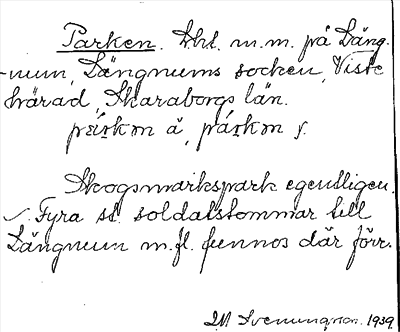 Parken. Lht. m.m. på Läng-
num, Längnums socken, Viste
härad, Skaraborgs län.
pár̥km ǎ, pár̥km ʃ.
Skogsmarkspark egentligen.
Fyra st. soldatstommar till
Längnum m.fl. funnos där förr.
IM Svenungson. 1939